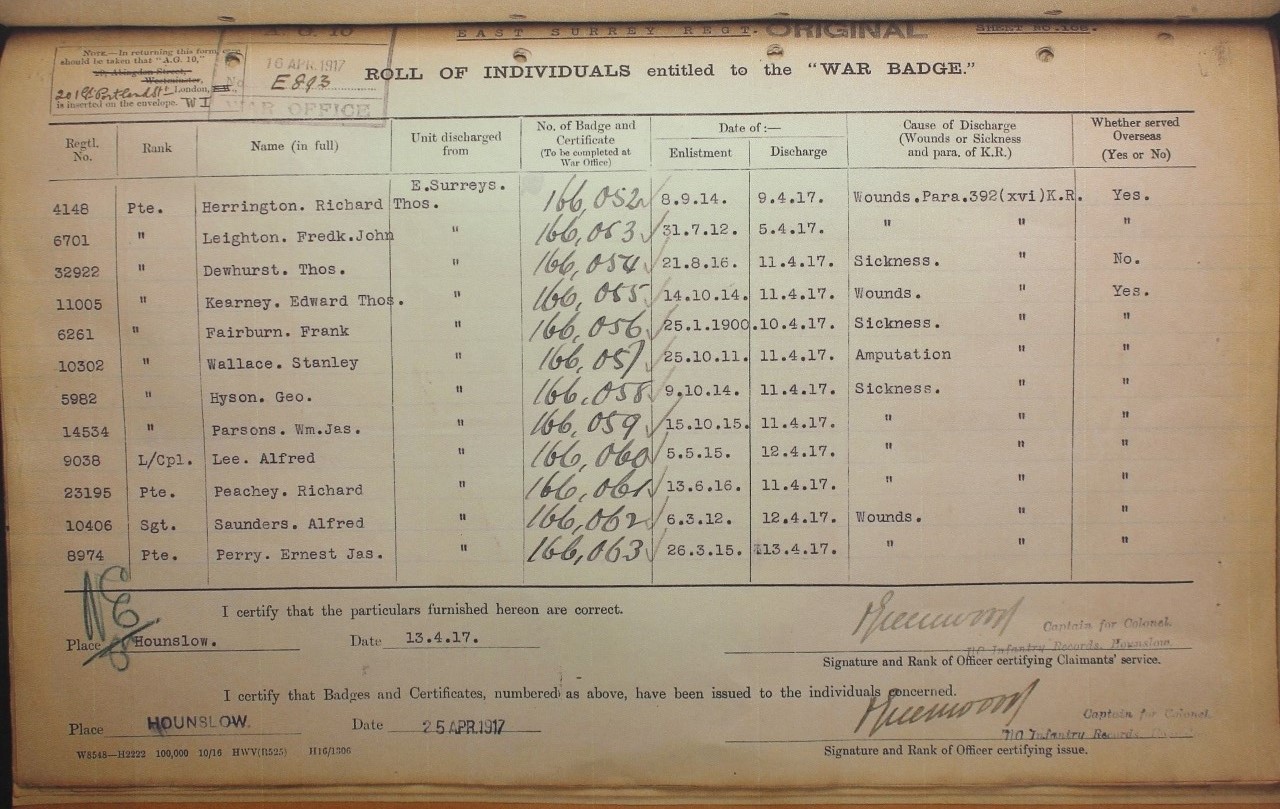 A. G. 10 EAST SURREY REGT. ORIGINAL SHEET NO.
NOTE.—In returning this form,
should be taken that "A.G. 10,"
Abingdon Street,
Westminster,
London,
is inserted on the envelope. W I
16 APR. 1917
No E893
WAR OFFICE
ROLL OF INDIVIDUALS entitled to the "WAR BADGE."
Regtl. No. Rank Name (in full) Unit discharged from No. of Badge and Certificate (To be completed at War Office) Date of:— Enlistment Discharge Cause of Discharge (Wounds or Sickness and para. of K.R.) Whether served Overseas (Yes or No)
E.Surreys.
4148 Pte. Herrington. Richard Thos. 166,052 8.9.14. 9.4.17. Wounds.Para.392(xvi)K.R. Yes.
6701 " Leighton. Fredk.John " 166,053 31.7.12. 5.4.17. " " "
32922 " Dewhurst. Thos. " 166,054 21.8.16. 11.4.17. Sickness. " No.
11005 " Kearney. Edward Thos. " 166,055 14.10.14. 11.4.17. Wounds. " Yes.
6261 " Fairburn. Frank " 166,056 25.1.1900. 10.4.17. Sickness. " "
10302 " Wallace. Stanley " 166,057 25.10.11. 11.4.17. Amputation " "
5982 " Hyson. Geo. " 166,058 9.10.14. 11.4.17. Sickness. " "
14534 " Parsons. Wm.Jas. " 166,059 15.10.15. 11.4.17. " " "
9038 L/Cpl. Lee. Alfred " 166,060 5.5.15. 12.4.17. " " "
23195 Pte. Peachey. Richard " 166,061 13.6.16. 11.4.17. " " "
10406 Sgt. Saunders. Alfred " 166,062 6.3.12. 12.4.17. Wounds. " "
8974 Pte. Perry. Ernest Jas. " 166,063 26.3.15. 13.4.17. " " "
I certify that the particulars furnished hereon are correct.
Place Hounslow. Date 13.4.17.
Greenwood Captain for Colonel.
Infantry Records, Hounslow.
Signature and Rank of Officer certifying Claimants' service.
I certify that Badges and Certificates, numbered as above, have been issued to the individuals concerned.
Place HOUNSLOW. Date 25 APR.1917
Greenwood Captain for Colonel.
Infantry Records,
Signature and Rank of Officer certifying issue.
W8548—H2222 100,000 10/16 HWV(R525) H16/1306